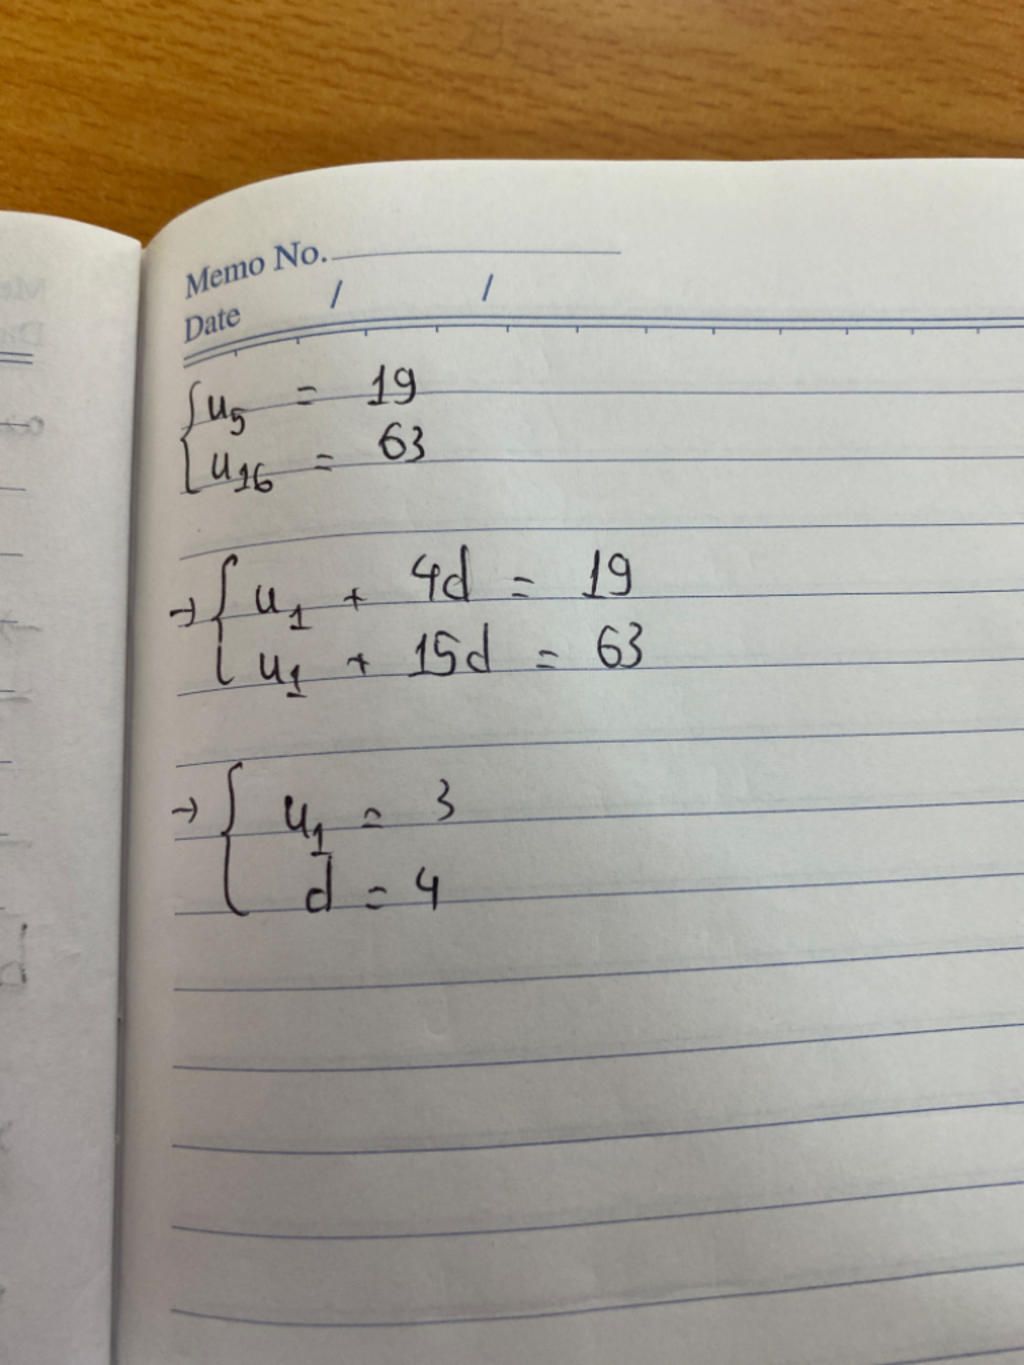 Memo No.
Date / /
{u₅ = 19
u₁₆ = 63
→ {u₁ + 4d = 19
u₁ + 15d = 63
→ {u₁ = 3
d = 4